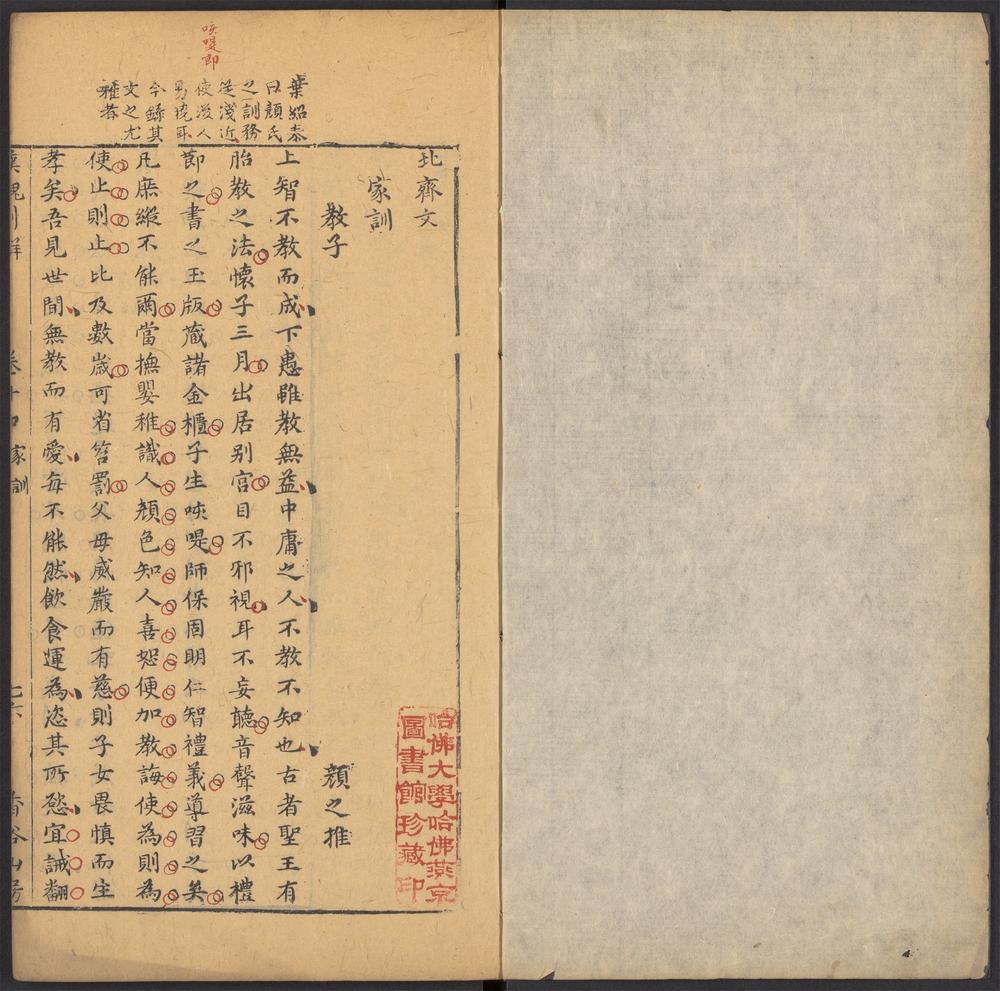 北齊文
家訓
教子 顔之推
上智不教而成下愚雖教無益中庸之人不教不知也古者聖王有
胎教之法懷子三月出居别宮目不邪視耳不妄聽音聲滋味以禮
節之書之玉版藏諸金櫃子生咳㖷師保固明仁智禮義導習之矣
凡庶縱不能爾當撫嬰稚識人顔色知人喜怒便加教誨使為則為
使止則止比及數歲可省笞罰父母威嚴而有慈則子女畏慎而生
孝矣吾見世間無教而有愛每不能然飲食運為恣其所慾宜誡翻
家訓
香谷山房
葉紹泰
曰顔氏
之訓務
從淺近
使後人
易曉耳
今錄其
文之尤
雅者
咳㖷即
哈佛大學哈佛燕京
圖書館珍藏印